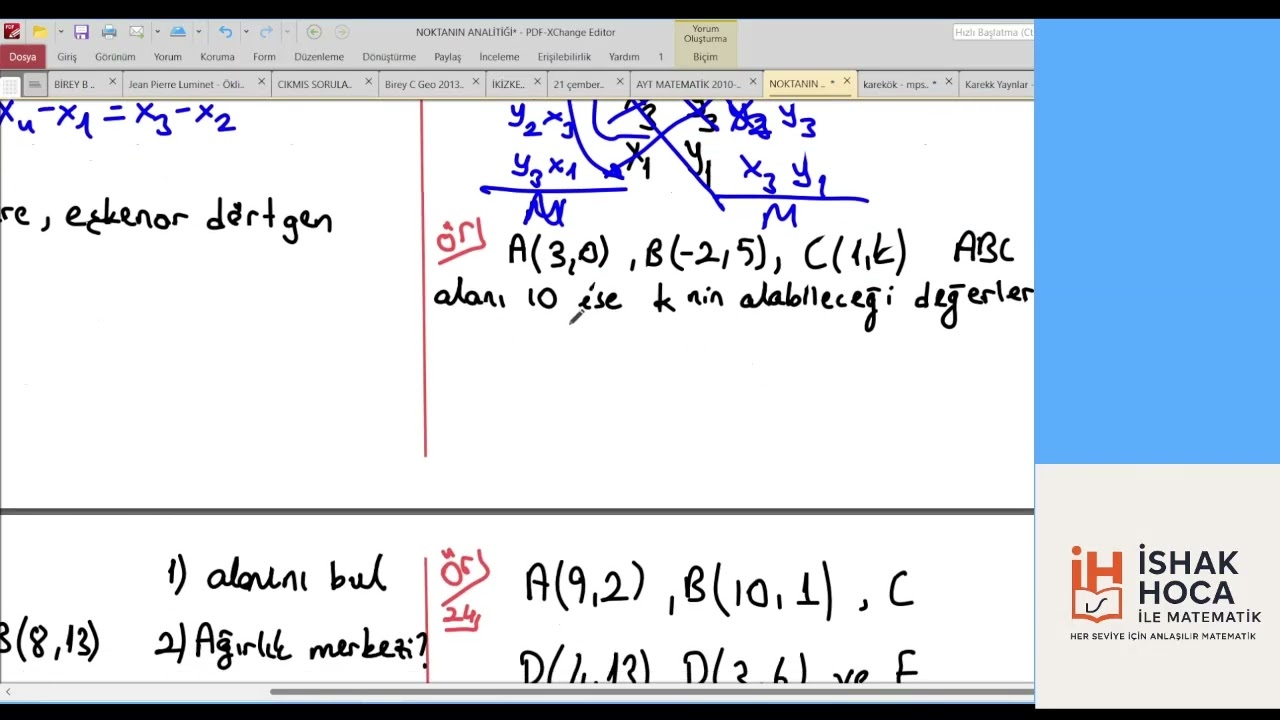 NOKTANIN ANALİTİĞİ* - PDF-XChange Editor
Yorum Oluşturma
Hızlı Başlatma (Ct
Dosya Giriş Görünüm Yorum Koruma Form Düzenleme Dönüştürme Paylaş İnceleme Erişilebilirlik Yardım 1 Biçim
BİREY B ... Jean Pierre Luminet - Ökli... CIKMIS SORULA... Birey C Geo 2013... İKİZKE... 21 çember... AYT MATEMATİK 2010-... NOKTANIN ... * karekök - mps.. * Karekk Yayınlar -
x₄ - x₁ = x₃ - x₂
y₂ x₃ x₃ y₃ y₃
y₃ x₁ x₁ y₁ x₃ y₁
M
re, eşkenar dörtgen
Ör/ A(3,0), B(-2,5), C(1,k) ABC
alanı 10 ise k nin alabileceği değerler
1) alanını bul
B(8,13) 2) Ağırlık merkezi?
Ör/ A(9,2), B(10,1), C
D(3,6) ve
İH İSHAK
HOCA
İLE MATEMATİK
HER SEVİYE İÇİN ANLAŞILIR MATEMATİK